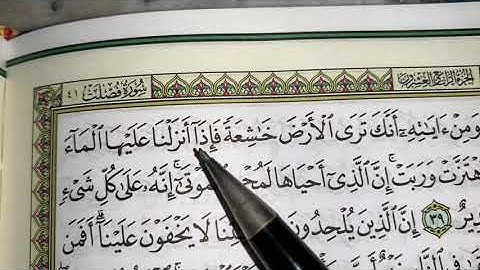 الجزء الرابع والعشرون سورة فصلت ٤١
وَمِنْ ءَايَٰتِهِۦٓ أَنَّكَ تَرَى ٱلْأَرْضَ خَٰشِعَةً فَإِذَآ أَنزَلْنَا عَلَيْهَا ٱلْمَآءَ
هْتَزَّتْ وَرَبَتْ ۚ إِنَّ ٱلَّذِىٓ أَحْيَاهَا لَمُحْ مَوْتَىٰٓ ۚ إِنَّهُۥ عَلَىٰ كُلِّ شَىْءٍ
دِيرٌ ٣٩ إِنَّ ٱلَّذِينَ يُلْحِدُونَ نَا لَا يَخْفَوْنَ عَلَيْنَآ ۗ أَفَمَن
فِى ٱلنَّارِ